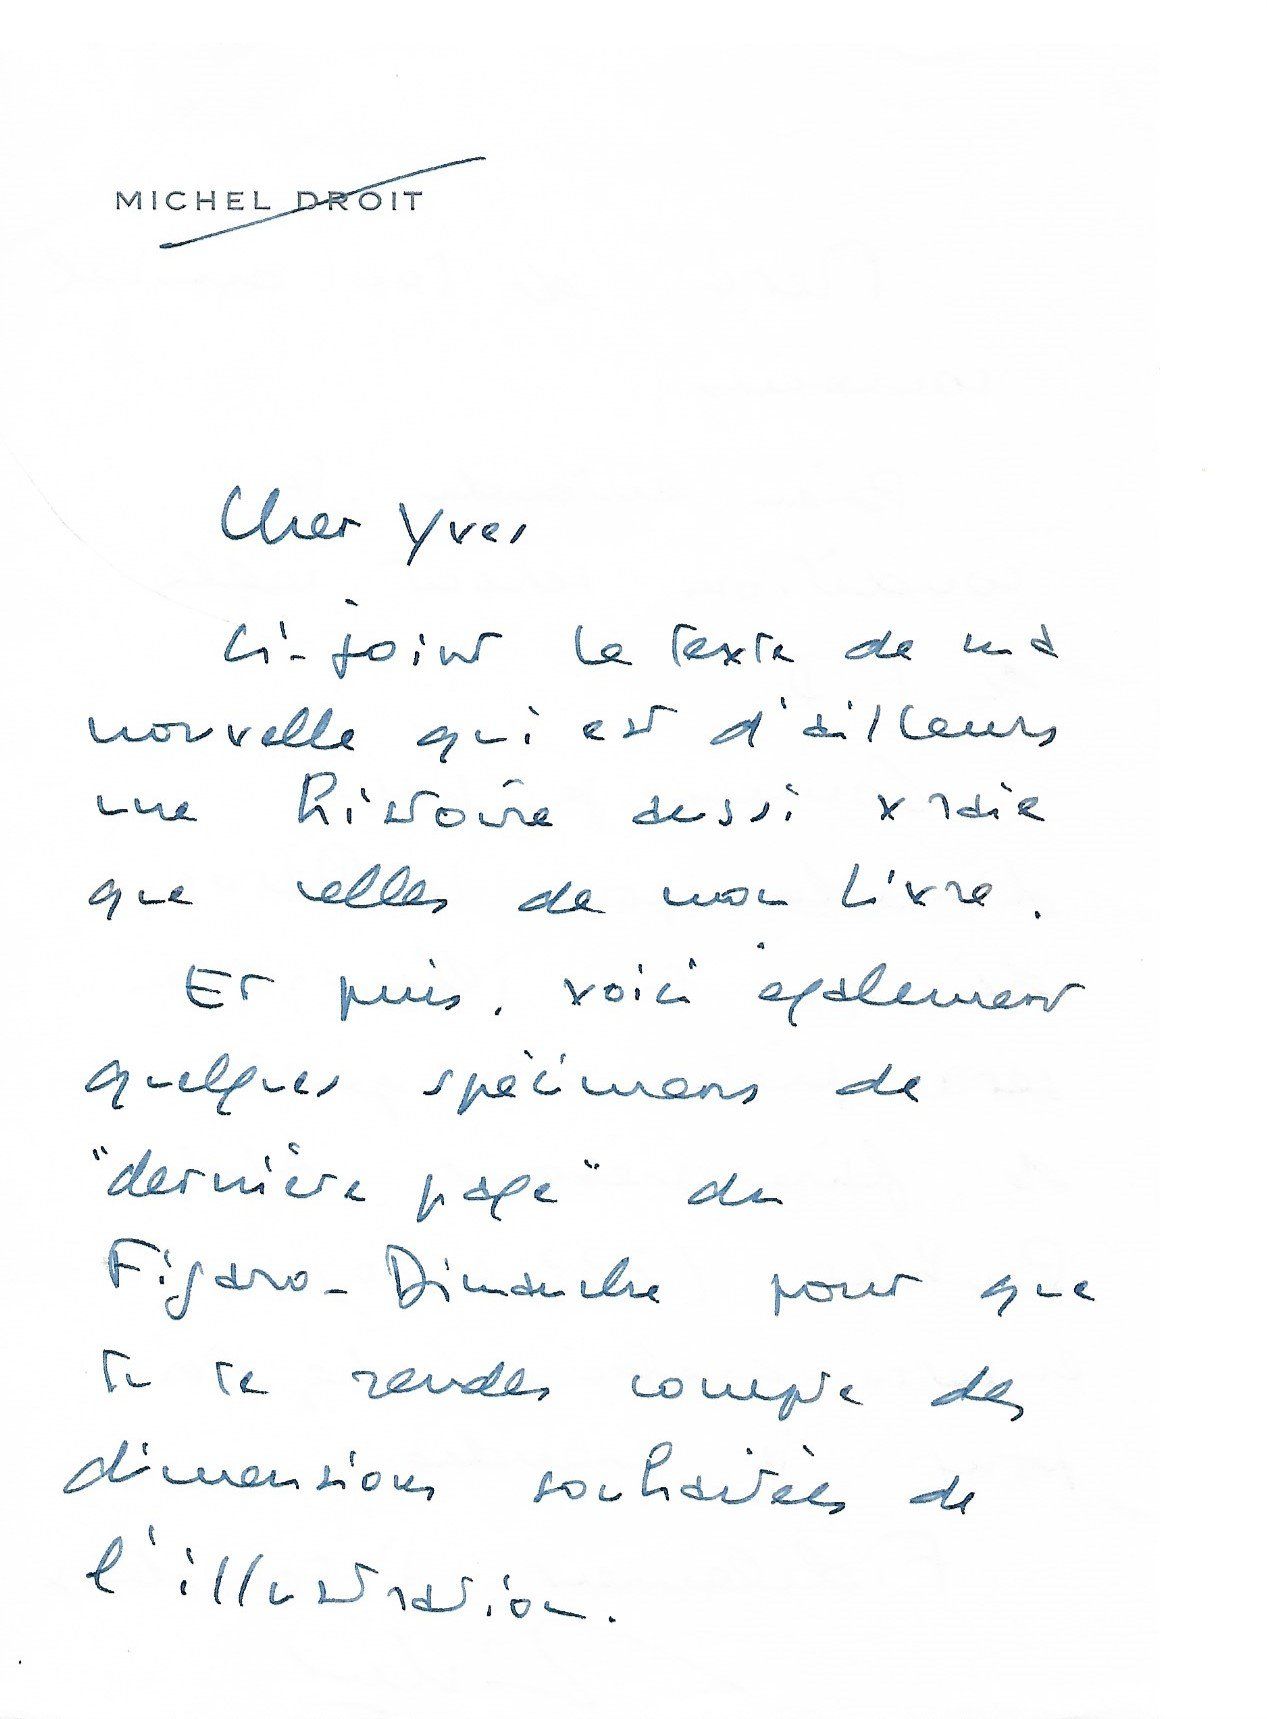 MICHEL DROIT
Cher Yves
Ci-joint le texte de ma
nouvelle qui est d'ailleurs
une histoire aussi vraie
que celles de mon livre.
Et puis, voici également
quelques spécimens de
"dernière page" du
Figaro-Dimanche pour que
tu te rendes compte des
dimensions souhaitées de
l'illustration.